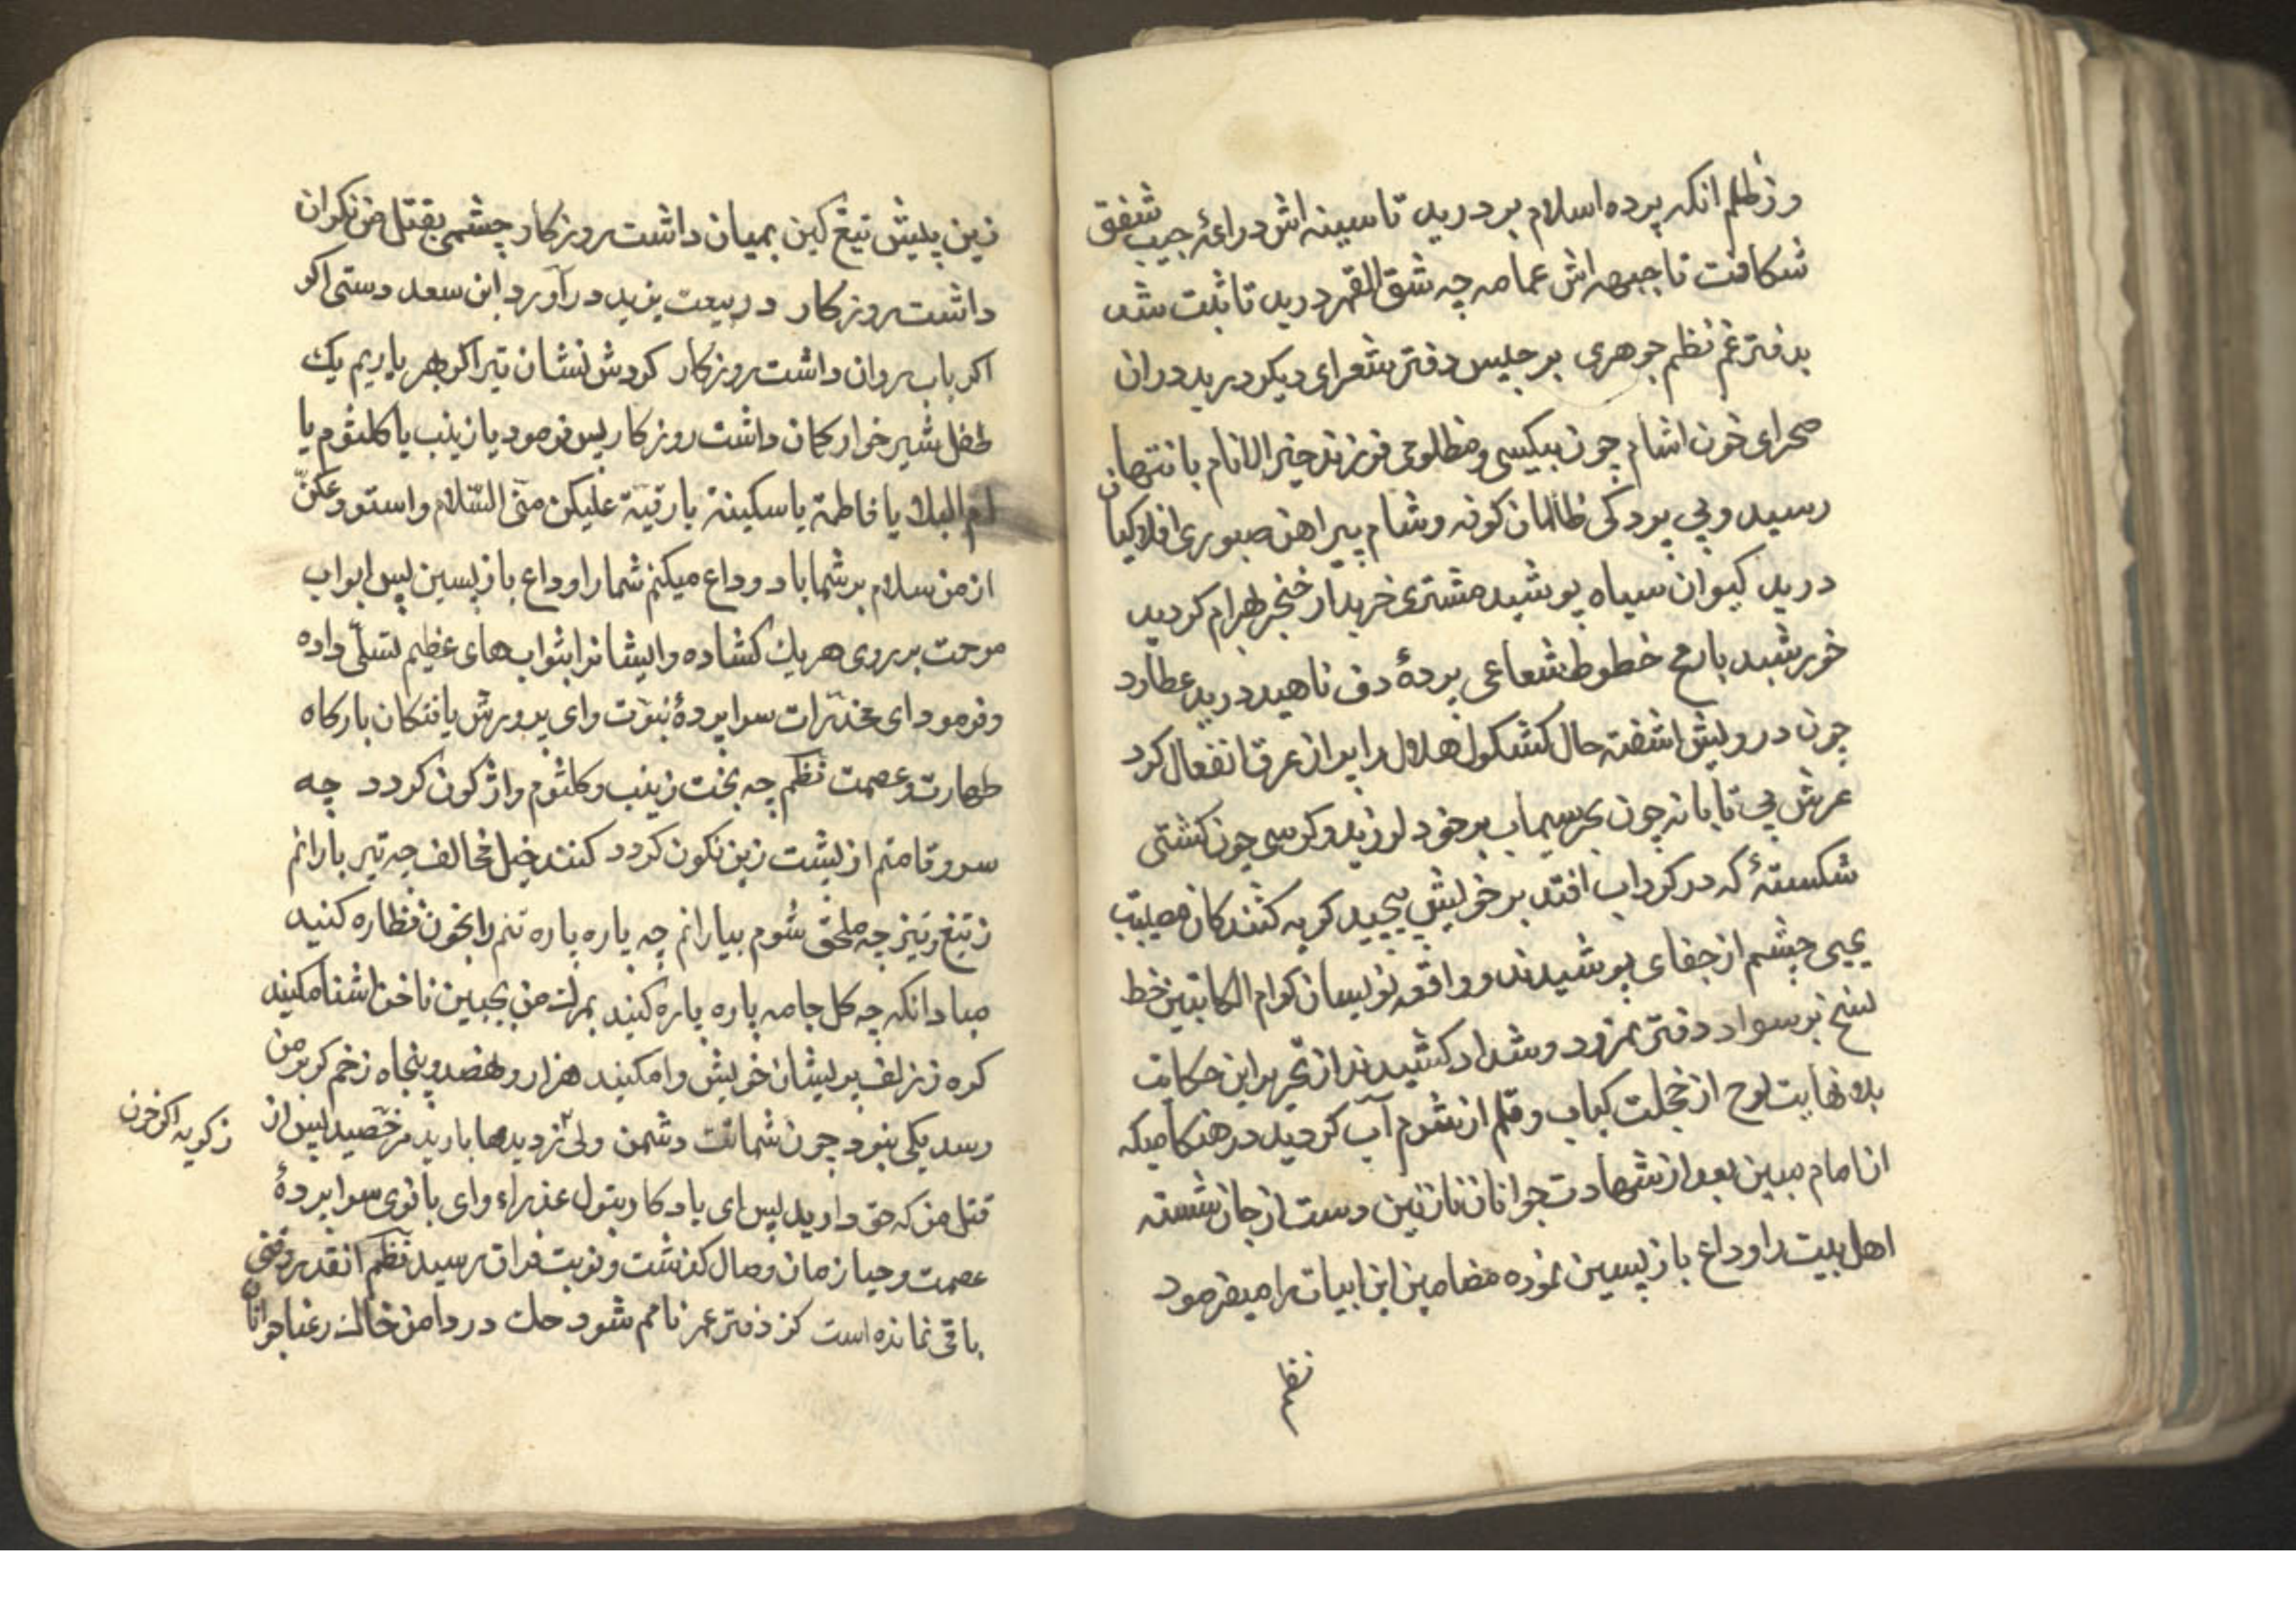 وز ظلم انکه پرده اسلام بر درید تا سینه اش دراعهٔ جیب شفق
شکافت تا جبهه اش عمامه چه شق القمر درید تا ثبت شد
بدفتر غم نظم جوهری برجیس دفتر شعرای دیکر درید دران
صحرای خون اشام چون بیکسی و مظلومی فرزند خیر الانام بانتهای
رسید و بی پردکی ظالمان کوفه و شام پیراهن صبوری افلاکیان
درید کیوان سیاه پوشید مشتری خریدار خنجر بهرام کردید
خورشید بارمح خطوط شعاعی پردهٔ دف ناهید درید عطارد
چون درویش اشفته حال کشکول هلال را پر از عرق انفعال کرد
عرش بی تابانه چون بحر سیماب بر خود لرزید و کرسی چون کشتی
شکستهٔ که در کرداب افتد بر خویش پیچید کریه کنندکان مصیبت
یحیی چشم از جفای پوشیدند و واقعه نویسان کرام الکاتبین خط
نسخ بر سواد دفتر نمرود و شداد کشیدند از تحریر این حکایت
بلا نهایت لوح از خجلت کباب و قلم از شرم آب کردید در هنکامیکه
ان امام مبین بعد از شهادت جوانان نازنین دست از جان شسته
اهل بیت را وداع باز پسین نموده مضامین این ابیات را میفرمود
زین پیش تیغ کین بمیان داشت روزکار چشمی بقتل من نکران
داشت روزکار در بیعت یزید در آورد ابن سعد دستی اکر
اکر باب روان داشت روزکار کردش نشان تیر اکر بهر یاریم یک
طفل شیر خوار کمان داشت روزکار پس فرمود یا زینب یا کلثوم یا
ام الیلا یا فاطمة یا سکینة یا رقیة علیکن منی السلام واستودعکن
از من سلام بر شما باد وداع میکنم شمارا وداع باز پسین پس ابواب
مرحمت بر روی هر یک کشاده و ایشانرا بثواب های عظیم تسلی داده
و فرمود ای مخدرات سراپردهٔ نبوت و ای پرورش یافتکان بارکاه
طهارت و عصمت نظم چه بخت زینب و کلثوم واژکون کردد چه
سرو قامتم از پشت زین نکون کردد کنند خیل مخالف چه تیر بارانم
ز تیغ تیز چه ملحق شوم بیارانم چه پاره پاره تنم را بخون نظاره کنید
مبادانکه چه کل جامه پاره پاره کنید بمرک من بجبین ناخن اشنا مکنید
کره ز زلف پریشان خویش وا مکنید هزار و نهصد و پنجاه زخم کر بر من
رسد یکی نبود چون شماتت دشمن ولی ز دیدها بارید مرخصید پس از
ز کریه اکر خون
قتل من که حق دارید پس ای یادکار بتول عذراء و ای بانوی سراپردهٔ
عصمت و حیا زمان وصال کذشت و نوبت فراق رسید نظم انقدر وقتی
باقی نمانده است کز دفتر عمر نامم شود حک در دامن خاک رعنا جوانان